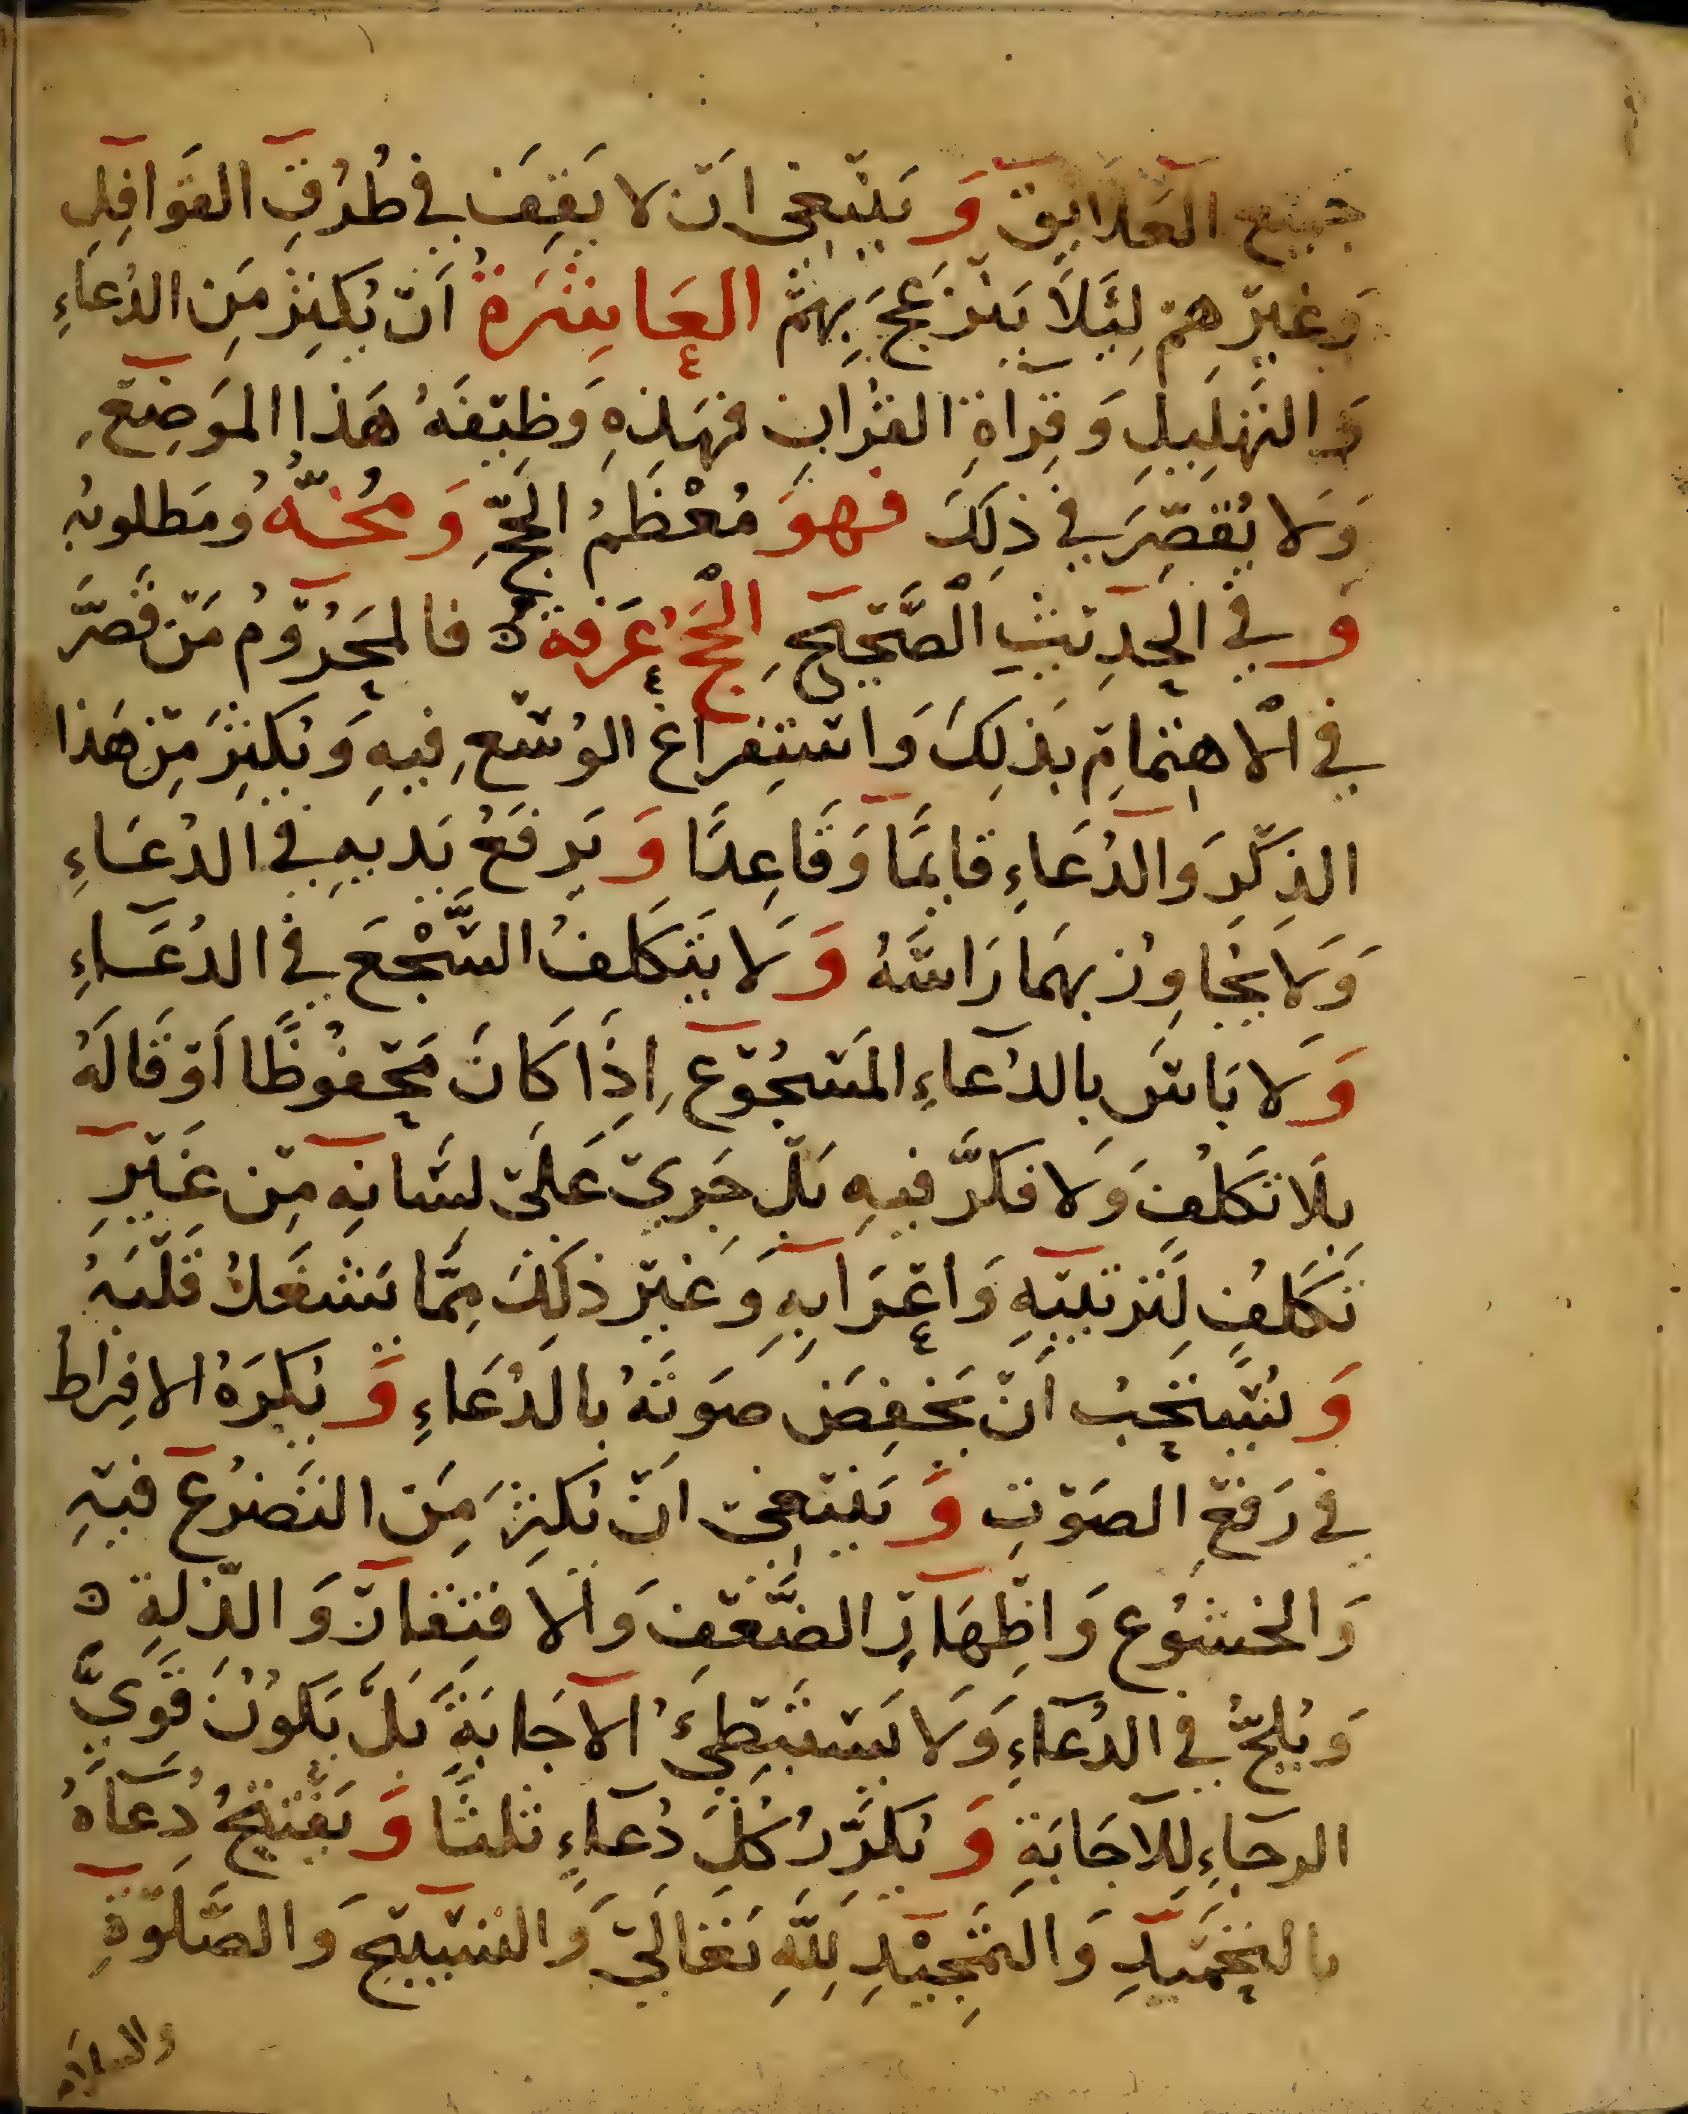 جميع العلايق وَيَنْبَغي اَنْ لا يَقِفَ في طُرُقِ القَوَافِلِ
وَغيْرهِمْ لِئَلاَ يَنْزعجَ بِهمْ العَاشِرَةُ اَنْ يُكثِرَ مِنَ الدُعَاءِ
وَالتَهْلِيلِ وَقِراةِ القُرْانِ فهَذِهِ وَظِيْفَهُ هَذا المَوَضِعِ
وَلا يُقَصِّرَ في ذلِكَ فهوَ مُعْظَمُ الحَجِّ وَمُخُّهُ وَمَطلوبُهُ
وَفي الحَدِيْثِ الْصَّحِيحِ الْحَجُ عَرَفه ه فالمَحْرُوْمُ مَنْ قَصَّرَ
في الْاهتمامِ بذلِكَ وَاسْتِفراغ الوُسْعِ فيهِ وَيُكثِرَ مِنْ هَذا
الذِكْرِ وَالدُعَاءِ قايمًا وَقَاعِدًا وَيَرفَعُ يَدَيهِ في الدُعَاءِ
وَلا يُجَاوِزُ بهمَا رَاسَهُ وَلا يَتَكَلفُ السَّجْعَ في الدُعَاءِ
وَلا بَاسَ بالدُعاءِ المَسْجُوْعِ اِذَا كَانَ مَحْفُوظًا اَوْ قَالَهُ
بِلَا تَكَلُفِ وَلا فكرَّ فيهِ بَلْ جَرَيْ عَلَى لسَانِهِ مِنْ غَيْرِ
تَكَلفِ لتَرتيْبهِ وَاعْرَابِهِ وَغيْر ذلِكَ مِمَّا يَشغَلُ قَلْبَهُ
وَيُسْتَحَبُ اَنْ يَخفِضَ صَوتَهُ بالدُعَاءِ وَيُكرَهُ الافراط
في رَفعْ الصَوْتِ وَيَنْبَغيْ اَنْ يُكثِرَ مِنَ التَضرُع فيْهِ
وَالخشُوع وَاظِهَارْ الضَّعْفِ وَالافتِقارْ وَالذِلةِ ه
وَيُلحُّ في الدُعَاءِ وَلا يَسْتَبْطِئُ الاجَابَةَ بَلْ يَكُونُ قَوَيَّ
الرجاءِ لِلاجَابَةِ وَيُكرَّرُ كُلَ دُعاءٍ ثلثًا وَيَفْتتِحُ دُعاهُ
بالتحَمْيدِ وَالتَمْجِيْدِ للهِ تَعَالَيْ وَالتسْبيْح وَالصَّلوْةِ
والسلام